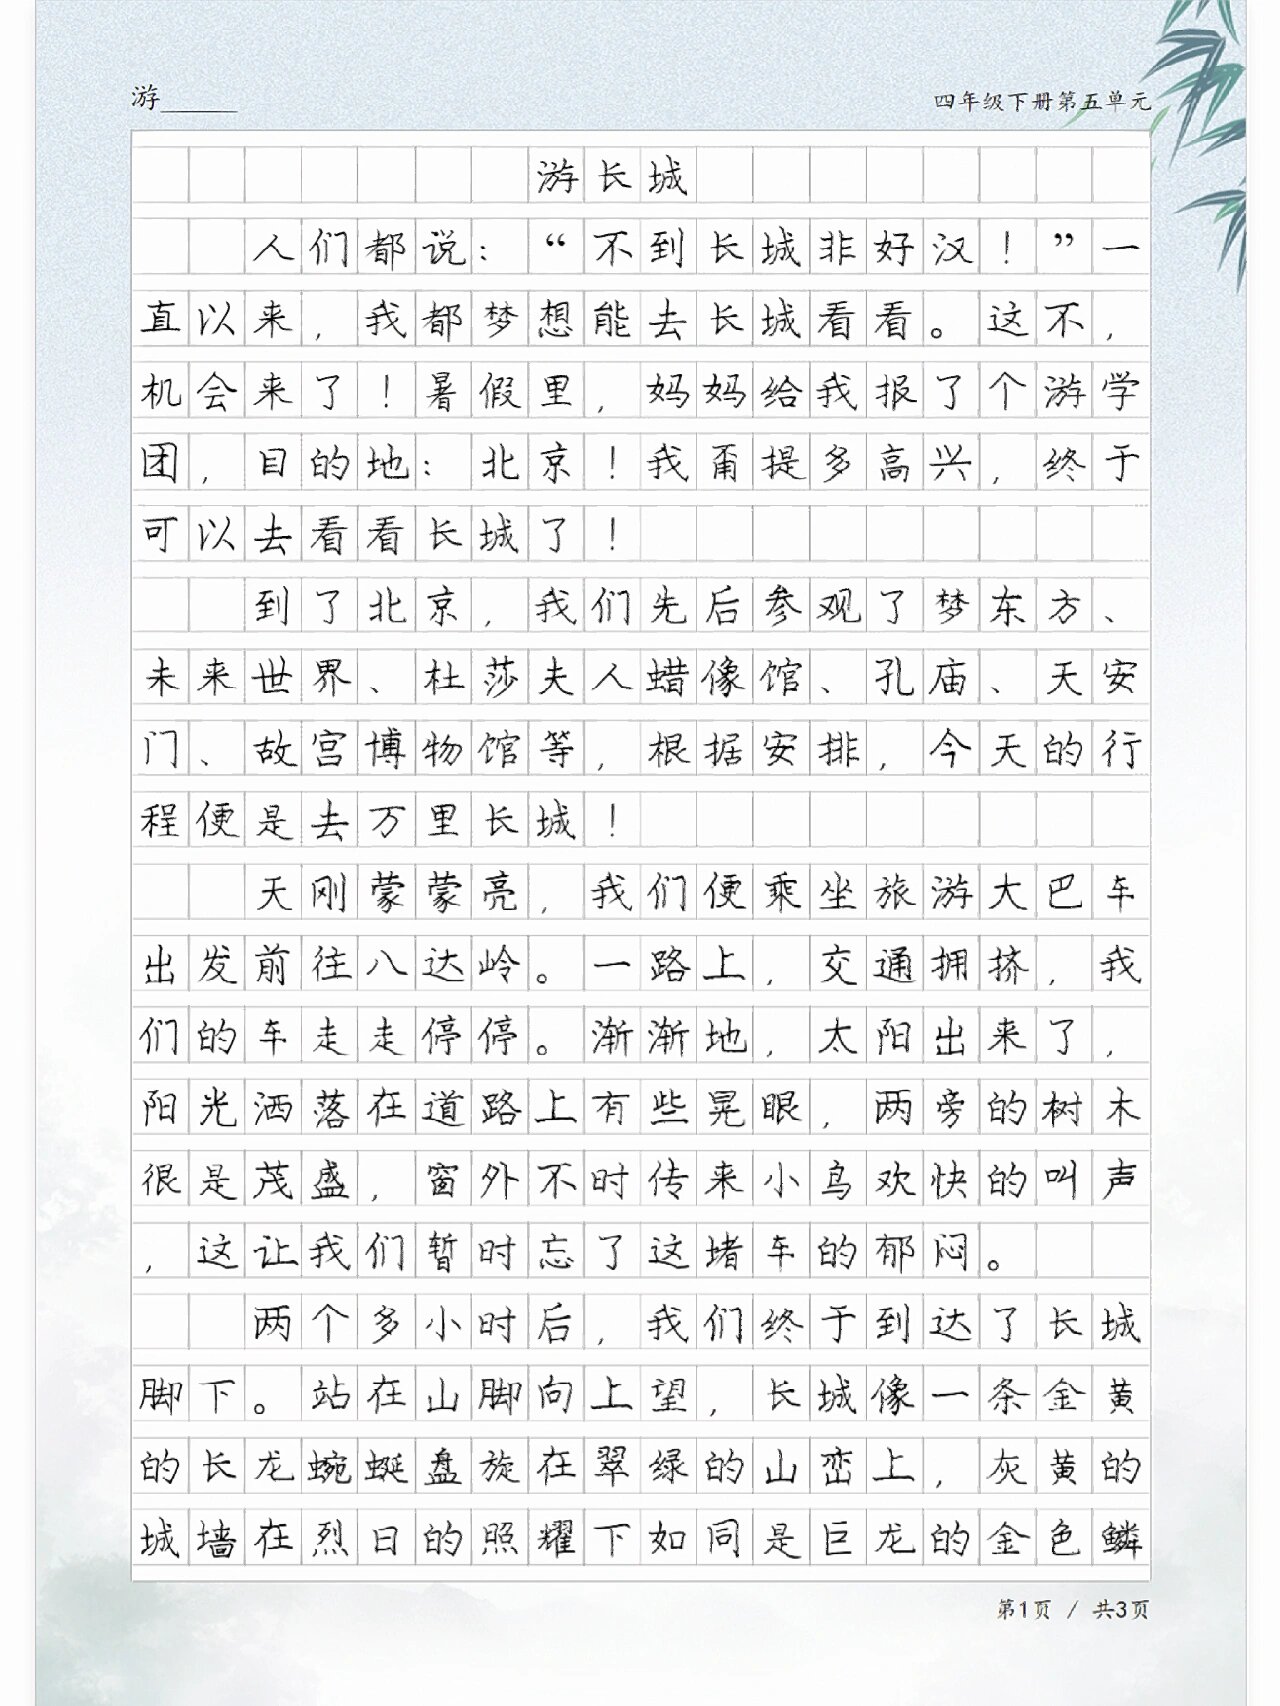 游______
四年级下册第五单元
游长城
人们都说：“不到长城非好汉！”一
直以来，我都梦想能去长城看看。这不，
机会来了！暑假里，妈妈给我报了个游学
团，目的地：北京！我甭提多高兴，终于
可以去看看长城了！
到了北京，我们先后参观了梦东方、
未来世界、杜莎夫人蜡像馆、孔庙、天安
门、故宫博物馆等，根据安排，今天的行
程便是去万里长城！
天刚蒙蒙亮，我们便乘坐旅游大巴车
出发前往八达岭。一路上，交通拥挤，我
们的车走走停停。渐渐地，太阳出来了，
阳光洒落在道路上有些晃眼，两旁的树木
很是茂盛，窗外不时传来小鸟欢快的叫声
，这让我们暂时忘了这堵车的郁闷。
两个多小时后，我们终于到达了长城
脚下。站在山脚向上望，长城像一条金黄
的长龙蜿蜒盘旋在翠绿的山峦上，灰黄的
城墙在烈日的照耀下如同是巨龙的金色鳞
第1页 / 共3页